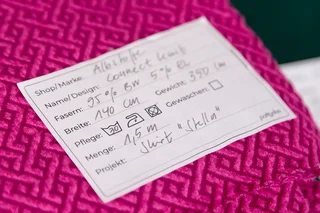 Shop/Marke: Albstoffe
Name/Design: Connect Knit
Fasern: 95% BW 5% EL
Breite: 140 cm Gewicht: 350 gm
Pflege: 30 Gewaschen:
Menge: 1,5 m
Projekt: Shirt "Stella"